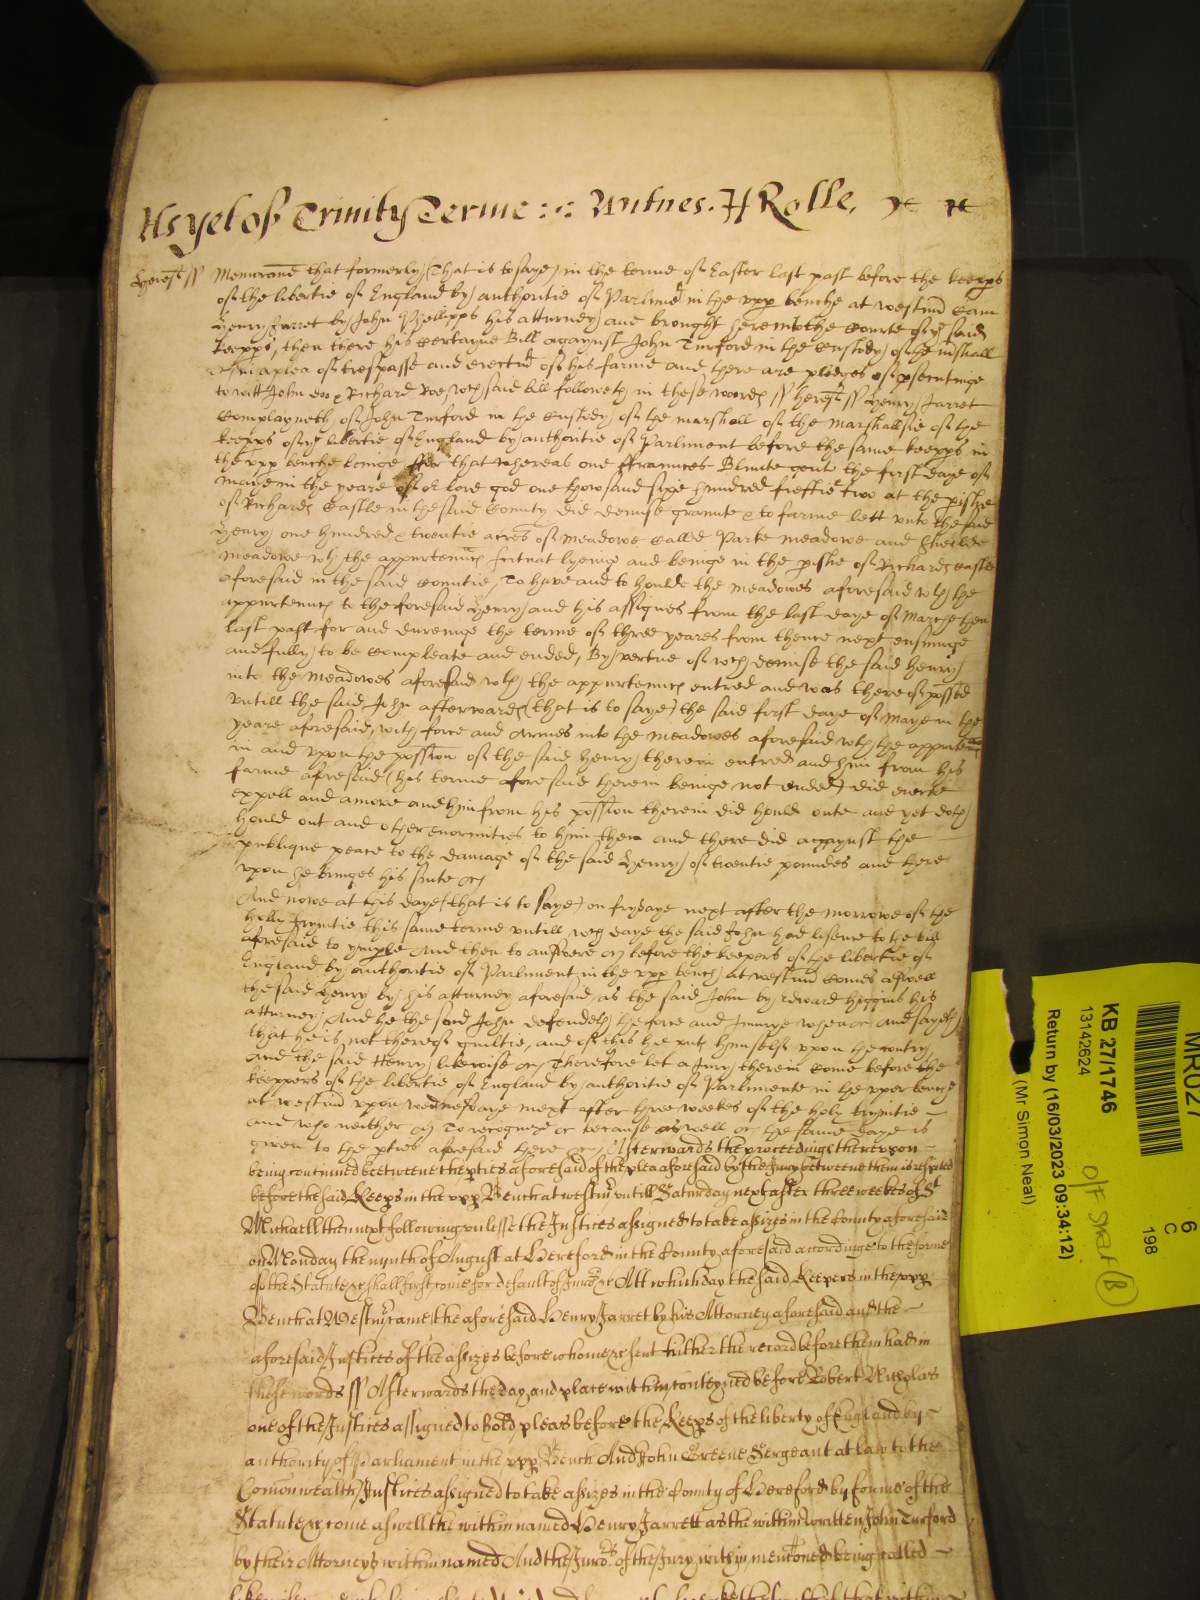 As yet of Trinity Terme :: Witnes. H Rolle,
Heref ss Memorand that formerly (That is to saye) in the terme of Easter last past before the keeps
of the libertie of England by authoritie of Parlimt in the upp benche at westm Cam
Henry Jarret by John Phellipps his atturney and brought here into the Courte of ye said
keeps, then there his certayne Bill agaynst John Turford in the Custody of the mshall
in a plea of trespasse and eiectm of his farme and there are pledges of psecutinge
to witt John doo & Richard Roe, wch said bill followeth in these words ss Heref ss Henry Jarret
Complayneth of John Turford in the Custody of the marshall of the marshallsie of the
keeps of ye libertie of England by authoritie of Parliment before the same keeps in
the upp benche beinge ffor that whereas one ffrannces Blunte gent the first daye of
Maye in the yeare of or lord god one thowsand sixe hundred fieftie two at the pishe
of Richards Castle in the said County did demise graunte & to farme lett unto the said
Henry one hundred & twentie acres of meadowe called Parke meadowe and
meadowe wth the appurtennces scituat lyeinge and beinge in the pishe of Richards Castle
aforesaid in the said Countie, To have and to houlde the meadowes aforesaid wth the
appurtennces to the foresaid Henry and his assignes from the last daye of Marche then
last past for and dureinge the terme of three yeares from thence next ensuinge
and fully to be compleate and ended, By vertue of wch demise the said Henry
into the meadowes aforesaid wth the appurtennces entred and was thereof possed
untill the said John afterwards (that is to saye) the said first daye of Maye in the
yeare aforesaid, with force and Armes into the meadowes aforesaid wth the appurten
in and upon the possion of the said Henry therein entred and him from his
farme aforesaid (his terme aforesaid therein beinge not ended) did eiecte
expell and amove and him from his possion therein did hould oute and yet doth
hould out and other enormities to him then and there did agaynst the
publique peace to the damage of the said Henry of twentie poundes and there
upon he bringes his suite &c
And nowe at this daye (that is to saye) on frydaye next after the morrowe of the
holly Trynitie this same terme untill wch daye the said John had lisence to the bill
aforesaid to ymple And then to answere &c before the keepers of the libertie of
England by authoritie of Parliment in the upp bench at westm comes aswell
the said Henry by his atturney aforesaid, as the said John by Edward Higgins his
atturney, And he the said John defendeth the force and Iniurye when &c and sayeth
that he is not thereof guiltie, and of this he puts himselfe upon the contry
And the said Henry likewise &c Therefore let a Jury therein come before the
keepers of the libertie of England by authoritie of Parlimente in the upper bench
at westm upon wednesdaye next after three weekes of the holy trynitie
and who neither &c To recognize &c because aswell &c the same daye is
given to the pties aforesaid there &c Afterwards the proceedings thereupon
being continued betweene the pties aforesaid of the plea aforesaid by the Jury betweene them is respited
before the said Keeps in the upp Bench at westmr untill Saturday next after three weekes of St
Michaell then next following unlesse the Justices assigned to take assizes in the County aforesaid
on Monday the nynth of August at Hereford in the County aforesaid accordinge to the forme
of the Statute &c shall first come for default of Jurors &c Att which day the said Keepers in the upp
Bench at Westmr came the aforesaid Henry Jarret by his Attorney aforesaid and the
aforesaid Justices of the assizes before whome &c sent hither the record before them had in
these words ss Afterwards the day and place within conteyned before Robert Nicholas
one of the Justices assigned to hold pleas before the Keeps of the liberty of England by
authority of Parliament in the upp Bench And John Greene Sergeant at law to the
Comonwealth Justices assigned to take assizes in the County of Hereford by forme of the
Statute &c come aswell the within named Henry Jarrett as the within written John Turford
by their Attorneys within named And the Jurors of the Jury within mentioned being called
MR027
KB 27/1746
13142624
Return by (16/03/2023 09:34:12)
(Mr Simon Neal)
6
C
1:98
O/F Shelf (B)